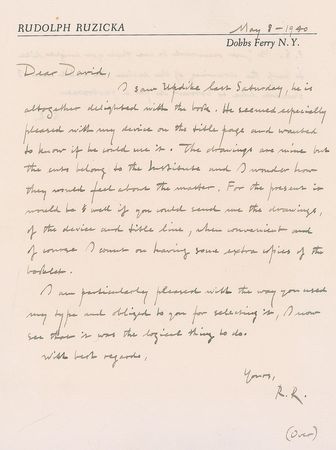 RUDOLPH RUZICKA
May 8 - 1940
Dobbs Ferry N. Y.
Dear David,
I saw Updike last Saturday, he is
altogether delighted with the book. He seemed especially
pleased with my device on the title page and wanted
to know if he could use it. The drawings are mine but
the cuts belong to the Institute and I wonder how
they would feel about the matter. For the present it
would be well if you could send me the drawings,
of the device and title line, when convenient and
of course I count on having some extra copies of the
booklet.
I am particularly pleased with the way you used
my type and obliged to you for selecting it, I now
see that it was the logical thing to do.
With best regards,
Yours,
R. R.
(Over)